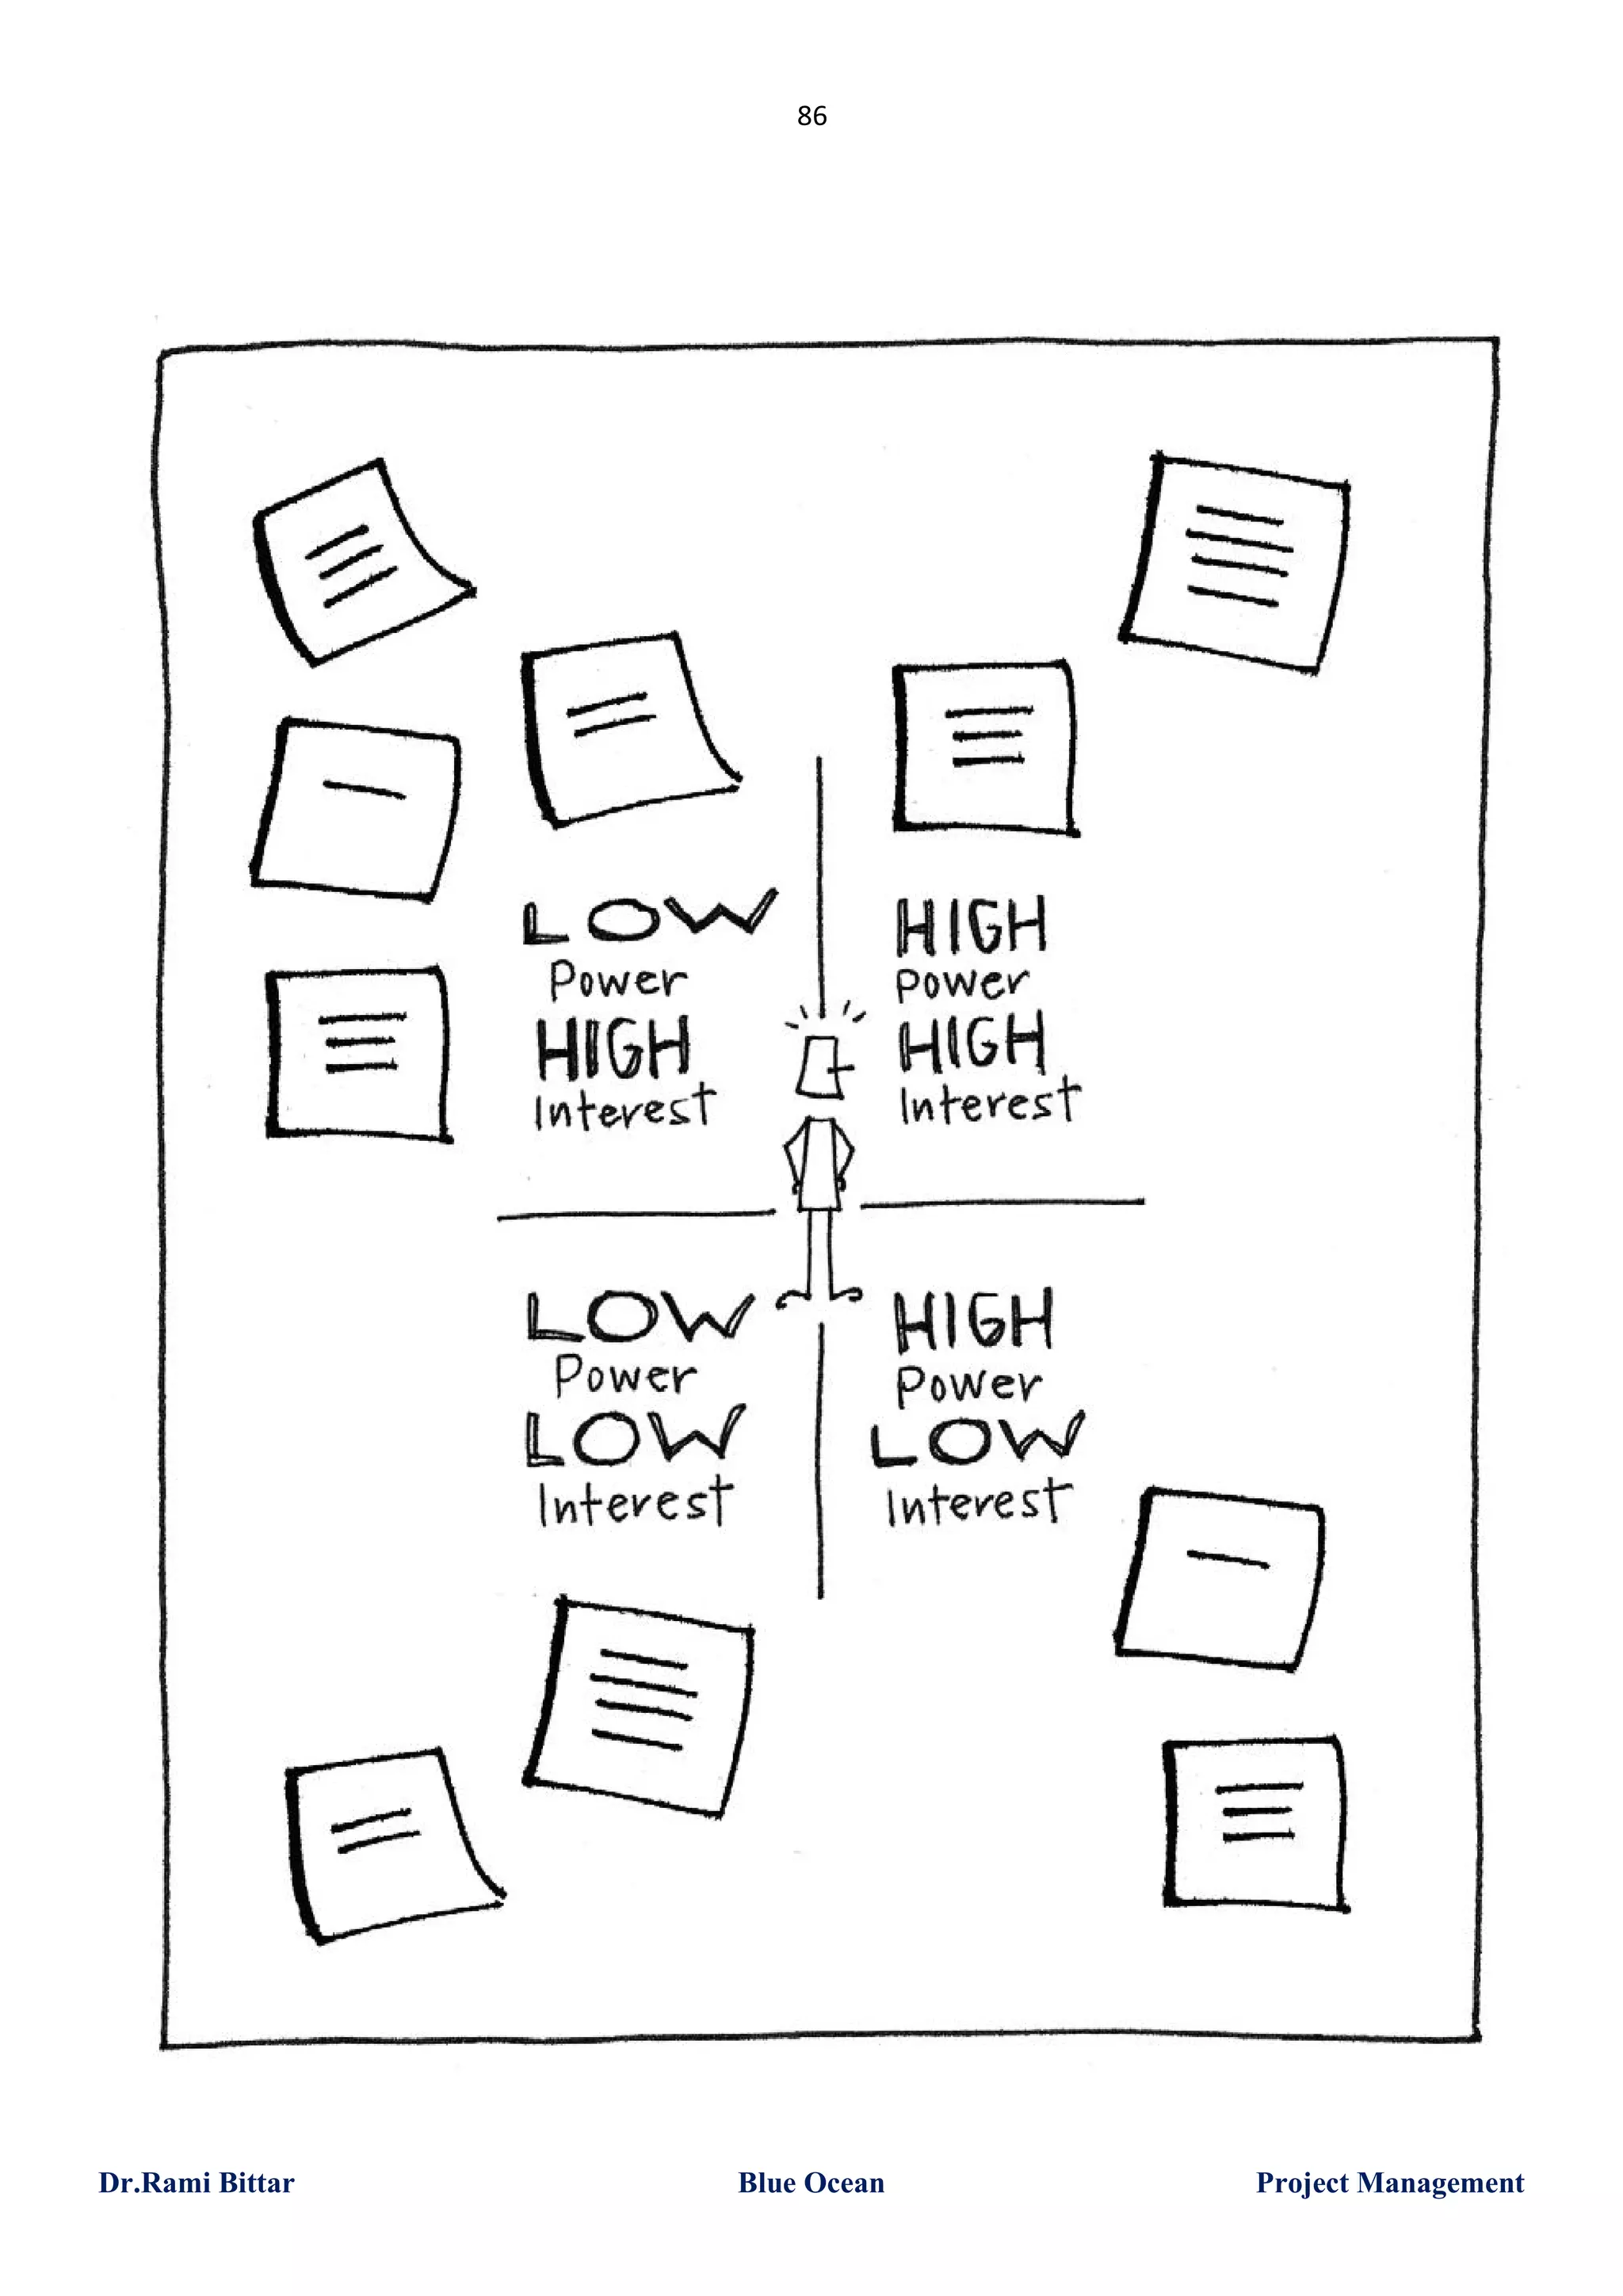 86
LOW
Power
HIGH
Interest
HIGH
Power
HIGH
Interest
LOW
Power
LOW
Interest
HIGH
Power
LOW
Interest
Dr.Rami Bittar Blue Ocean Project Management